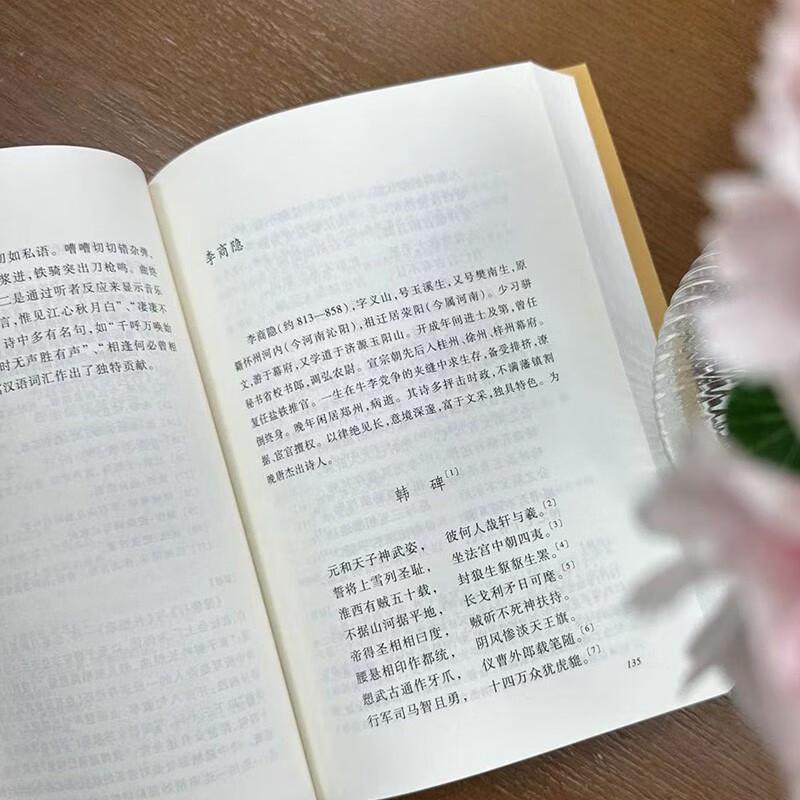 切如私语。嘈嘈切切错杂弹、
浆进,铁骑突出刀枪鸣。曲终
二是通过听者反应来显示音乐
言,惟见江心秋月白”、“凄凄不
诗中多有名句,如“千呼万唤始
时无声胜有声”、“相逢何必曾相
汉语词汇作出了独特贡献。
李商隐
李商隐(约813—858),字义山,号玉溪生,又号樊南生,原
籍怀州河内(今河南沁阳),祖迁居荥阳(今属河南)。少习骈
文,游于幕府,又学道于济源玉阳山。开成年间进士及第,曾任
秘书省校书郎,调弘农尉。宣宗朝先后入桂州、徐州、梓州幕府。
复任盐铁推官。一生在牛李党争的夹缝中求生存,备受排挤,潦
倒终身。晚年闲居郑州,病逝。其诗多抨击时政,不满藩镇割
据、宦官擅权。以律绝见长,意境深邃,富于文采,独具特色。为
晚唐杰出诗人。
韩 碑[1]
元和天子神武姿, 彼何人哉轩与羲。[2]
誓将上雪列圣耻, 坐法宫中朝四夷。[3]
淮西有贼五十载, 封狼生䝙䝙生罴。[4]
不据山河据平地, 长戈利矛日可麾。[5]
帝得圣相相曰度, 贼斫不死神扶持。
腰悬相印作都统, 阴风惨淡天王旗。
愬武古通作牙爪, 仪曹外郎载笔随。[6]
行军司马智且勇, 十四万众犹虎貔。[7]
135